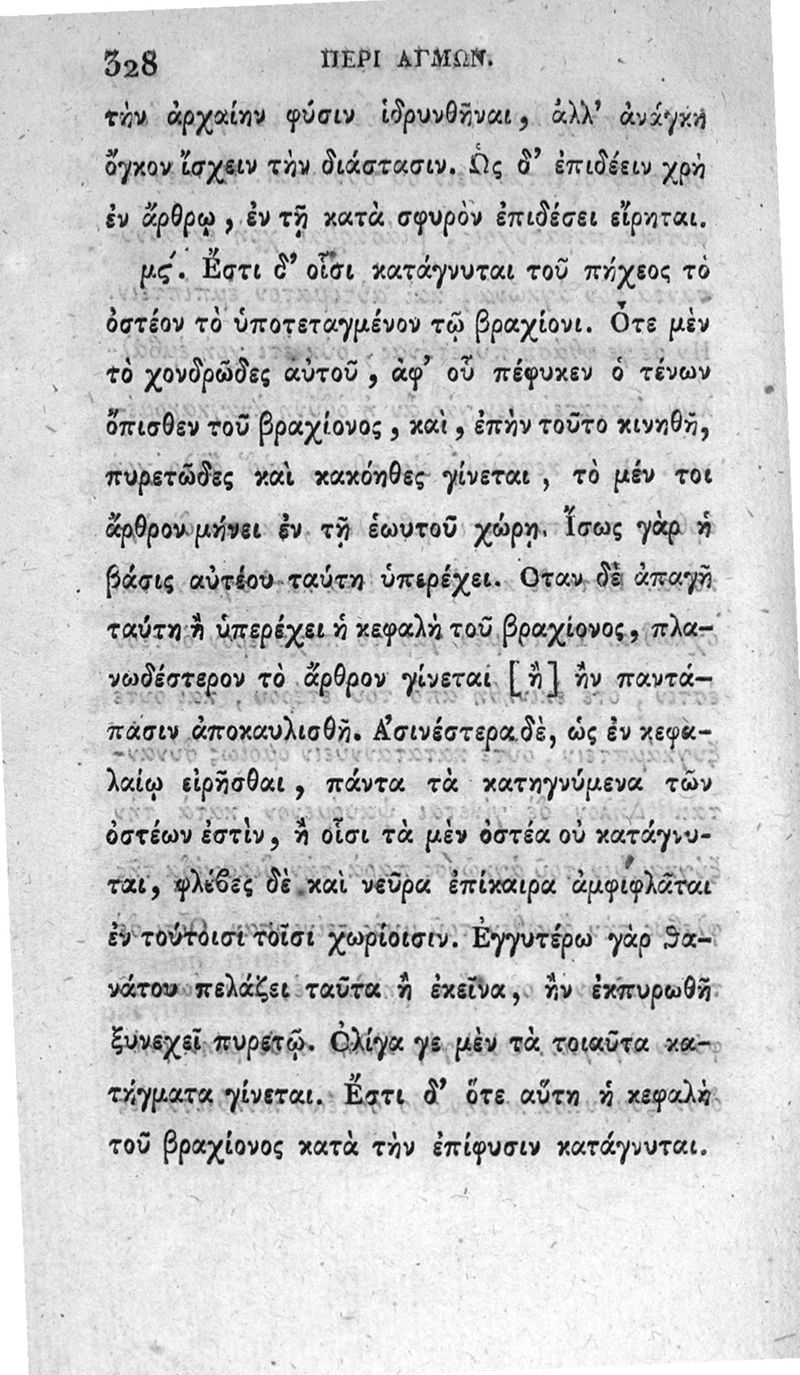 328 ΠΕΡΙ ΑΓΜΩΝ.
τὴν ἀρχαίην φύσιν ἱδρυνθῆναι, ἀλλ’ ἀνάγκη
ὄγκον ἴσχειν τὴν διάστασιν. Ὡς δ’ ἐπιδέειν χρὴ
ἐν ἄρθρῳ, ἐν τῇ κατὰ σφυρὸν ἐπιδέσει εἴρηται.
μϛ΄. Ἔστι δ’ οἷσι κατάγνυται τοῦ πήχεος τὸ
ὀστέον τὸ ὑποτεταγμένον τῷ βραχίονι. Ὅτε μὲν
τὸ χονδρῶδες αὐτοῦ, ἀφ’ οὗ πέφυκεν ὁ τένων
ὄπισθεν τοῦ βραχίονος, καὶ, ἐπὴν τοῦτο κινηθῇ,
πυρετῶδες καὶ κακόηθες γίνεται, τὸ μέν τοι
ἄρθρον μήνει ἐν τῇ ἑωυτοῦ χώρῃ. Ἴσως γὰρ ἡ
βάσις αὐτέου ταύτη ὑπερέχει. Οταν δὲ ἀπαγῇ
ταύτη ἢ ὑπερέχει ἡ κεφαλὴ τοῦ βραχίονος, πλα-
νωδέστερον τὸ ἄρθρον γίνεται [ἢ] ἢν παντά-
πασιν ἀποκαυλισθῇ. Ἀσινέστερα δὲ, ὡς ἐν κεφα-
λαίῳ εἰρῆσθαι, πάντα τὰ κατηγνύμενα τῶν
ὀστέων ἐστὶν, ἢ οἷσι τὰ μὲν ὀστέα οὐ κατάγνυ-
ται, φλέβες δὲ καὶ νεῦρα ἐπίκαιρα ἀμφιφλᾶται
ἐν τούτοισι τοῖσι χωρίοισιν. Ἐγγυτέρω γὰρ θα-
νάτου πελάζει ταῦτα ἢ ἐκεῖνα, ἢν ἐκπυρωθῇ
ξυνεχεῖ πυρετῷ. Ὀλίγα γε μὲν τὰ τοιαῦτα κα-
τήγματα γίνεται. Ἔστι δ’ ὅτε αὕτη ἡ κεφαλὴ
τοῦ βραχίονος κατὰ τὴν ἐπίφυσιν κατάγνυται.